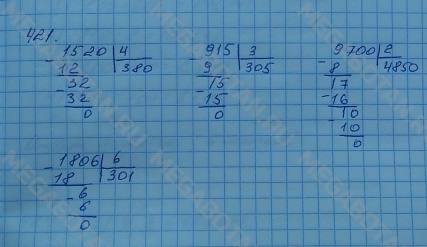 421.
- 1520 | 4
12 | 380
- 32
32
0
- 915 | 3
9 | 305
- 15
15
0
- 9700 | 2
8 | 4850
- 17
16
- 10
10
0
- 1806 | 6
18 | 301
- 6
6
0